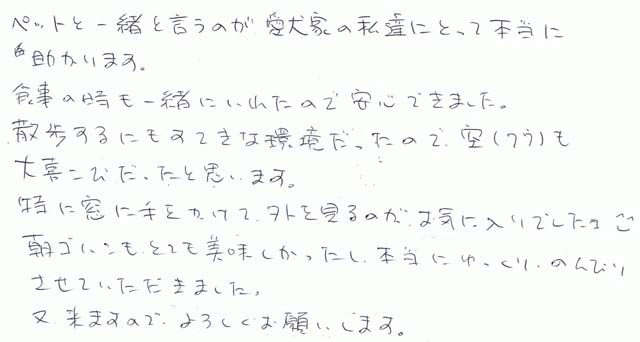 ペットと一緒と言うのが愛犬家の私達にとって本当に
助かります。
食事の時も一緒にいれたので安心できました。
散歩するにもすてきな環境だったので、空(クウ)も
大喜こびだったと思います。
特に窓に手をかけて、外を見るのがお気に入りでした
朝ゴハンもとても美味しかったし、本当にゆっくり、のんびり
させていただきました。
又、来ますので、よろしくお願いします。